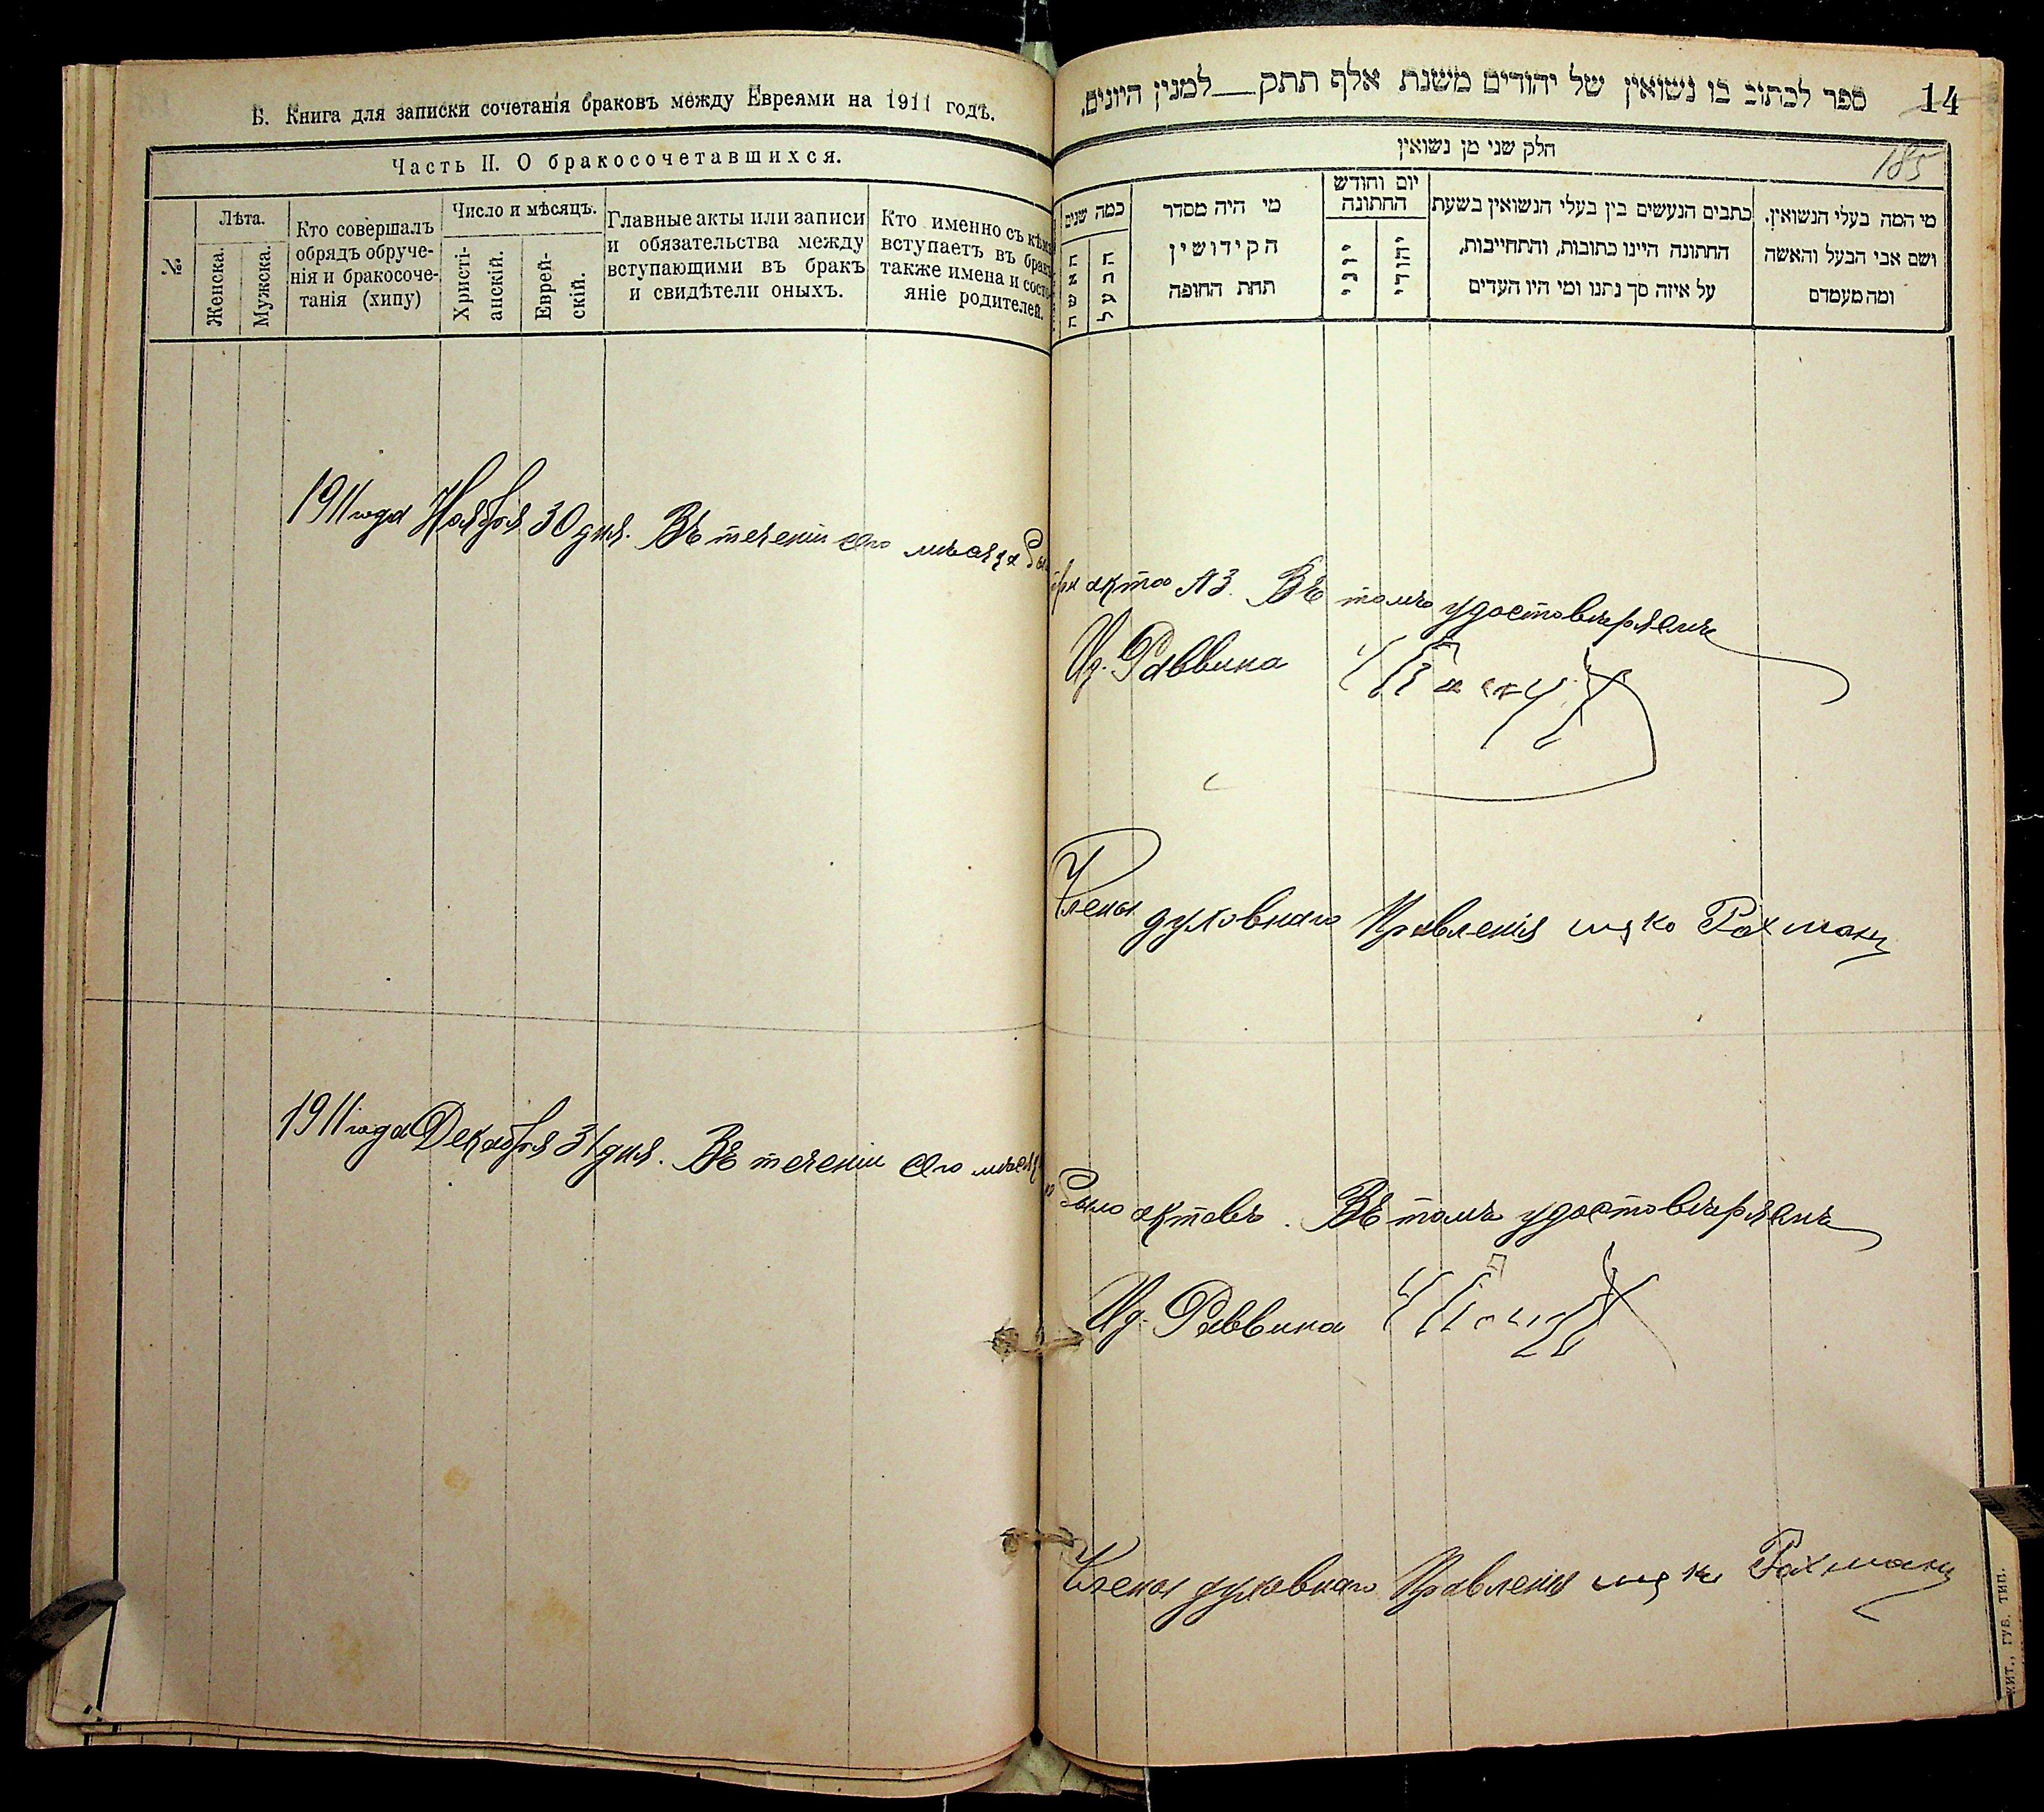 Б. Книга для записки сочетанія браковъ между Евреями на 1911 годъ.
Часть II. О бракосочетавшихся.
№
Лѣта.
Женска.
Мужска.
Кто совершалъ
обрядъ обруче-
нія и бракосоче-
танія (хипу)
Число и мѣсяцъ.
Христі-
анскій.
Еврей-
скій.
Главные акты или записи
и обязательства между
вступающими въ бракъ
и свидѣтели оныхъ.
Кто именно съ кѣмъ
вступаетъ въ бракъ
также имена и состо-
яніе родителей.
1911 года Ноября 30 дня. Въ теченіи сего мѣсяца
1911 года Декабря 31 дня. Въ теченіи сего мѣсяца
ספר לכתוב בו נשואין של יהודים משנת אלף תתק__למנין היונים.
14
חלק שני מן נשואין
185
מי המה בעלי הנשואין.
ושם אבי הבעל והאשה
ומה מעמדם
כתבים הנעשים בין בעלי הנשואין בשעת
החתונה היינו כתובות, והתחייבות,
על איזה סך נתנו ומי היו העדים
יום וחודש
החתונה
יהודי
יוני
מי היה מסדר
הקידושין
תחת החופה
כמה שנים
הבעל
האשה
три акта №3. Въ томъ удостовѣряемъ
Ид. Раввина
Члены духовнаго Правленія Ицко Рахманъ
было актовъ. Въ томъ удостовѣряемъ
Ид. Раввина
Члены духовнаго Правленія Ицко Рахманъ
жит., губ. тип.